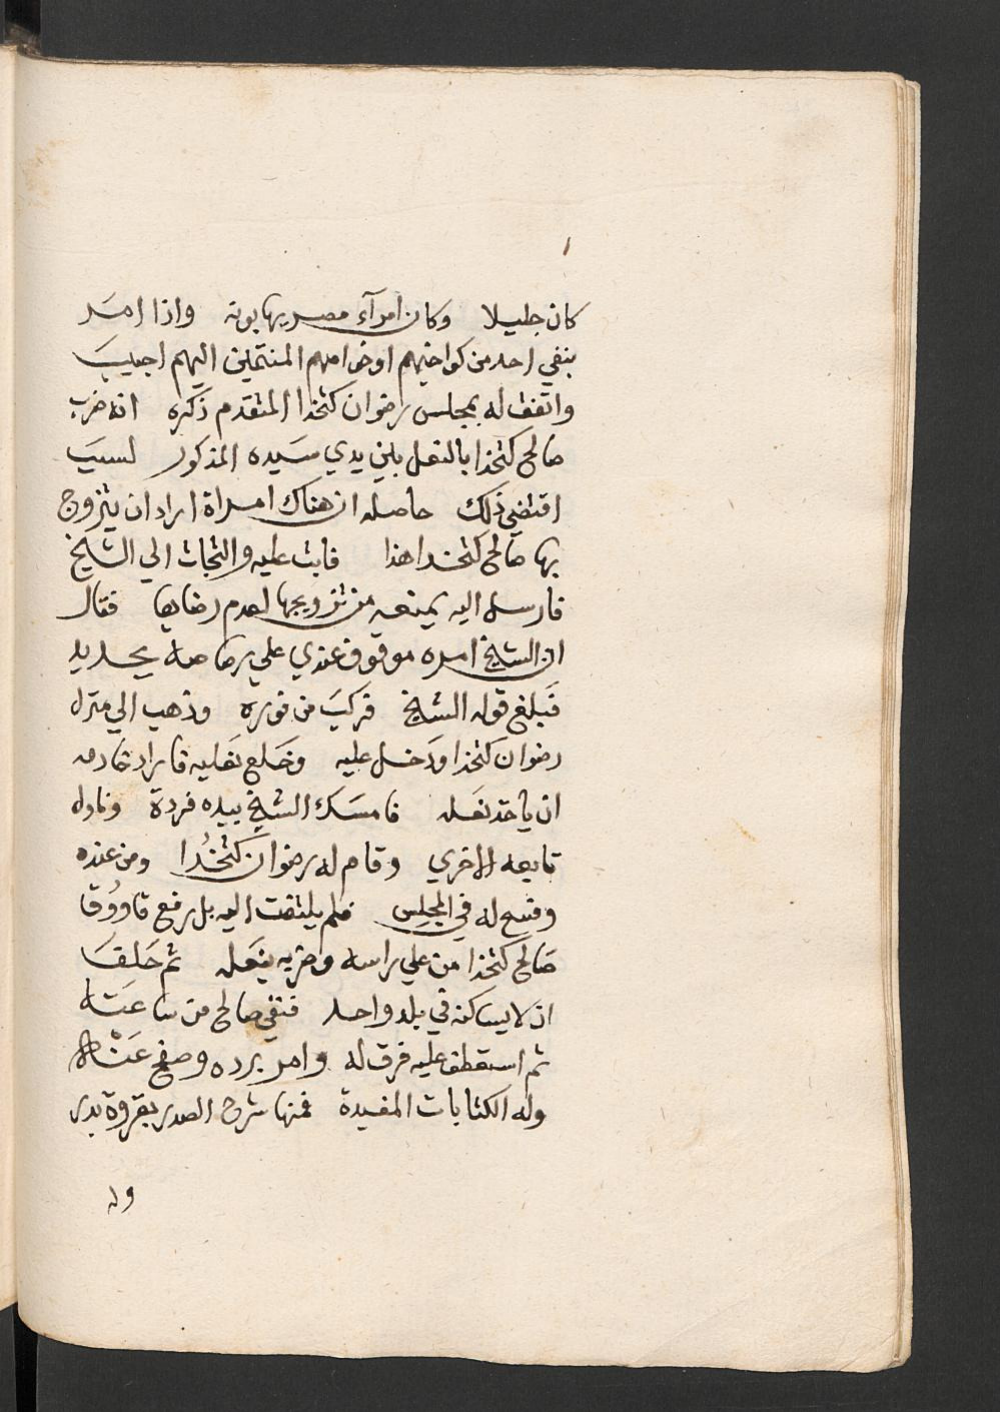 ١
كان جليلا وكان امرآء مصر يهابونه واذا امر
بنفي احد من كواخيهم او خدامهم المنتمين اليهم اجيب
واتفق له بمجلس رضوان كتخدا المتقدم ذكره انه ضرب
صالح كتخدا بالنعل بين يدي سيده المذكور لسبب
اقتضي ذلك حاصله ان هناك امراة اراد ان يتزوج
بها صالح كتخدا هذا فابت عليه والتجات الي الشيخ
فارسل اليه يمنعه من تزويجها لعدم رضايها فقال
ان الشيخ امره موقوف عندي علي رصاصه بجديد
فبلغ قوله الشيخ فركب من فوره وذهب الي منزل
رضوان كتخدا ودخل عليه وخلع نعليه فاراد خادمه
ان ياخذ نعله فامسك الشيخ بيده فردة وناول
تابعه الاخري وقام له رضوان كتخدا ومن عنده
وفسح له في المجلس فلم يلتفت اليه بل رفع قاووق
صالح كتخدا من علي راسه وضربه بنعله ثم حلف
ان لا يساكنه في بلد واحد فنفي صالح من ساعته
ثم استعطف عليه فرق له وامر برده وصفح عنه
وله الكتابات المفيدة فمنها شرح الصدر بغزوة بدر
وله